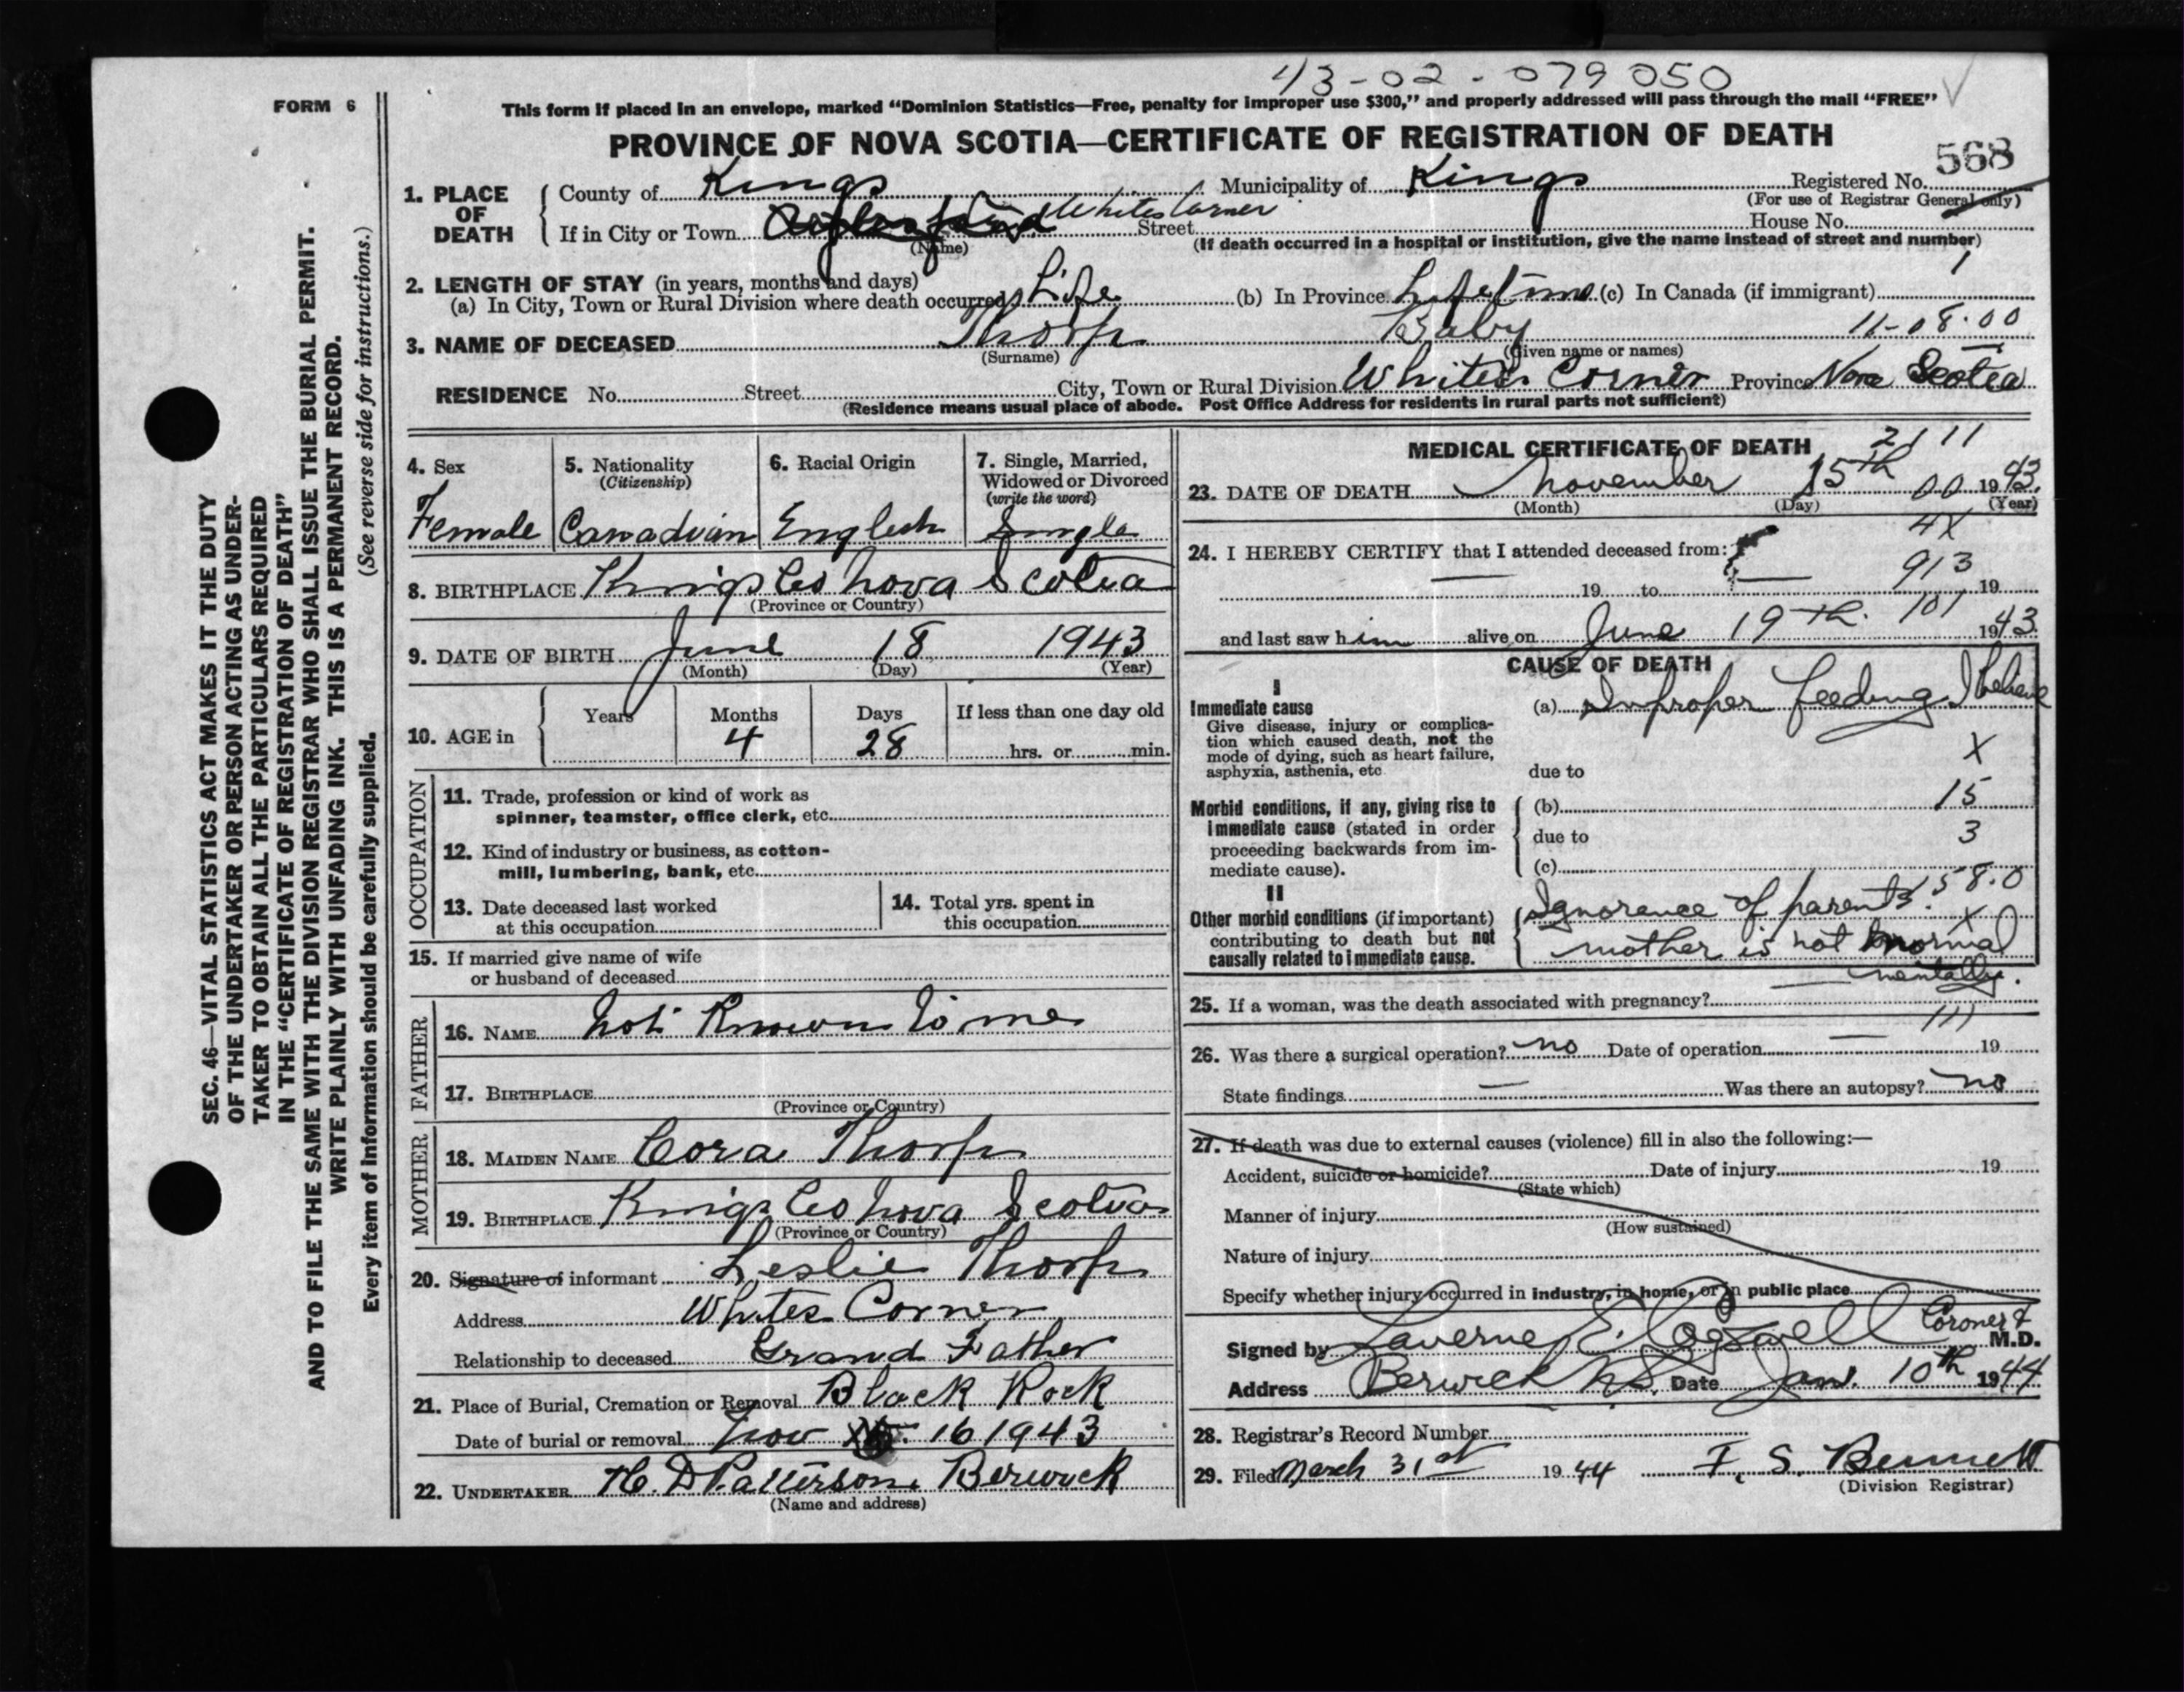 43-02-079050
FORM 6
This form if placed in an envelope, marked “Dominion Statistics—Free, penalty for improper use $300,” and properly addressed will pass through the mail “FREE”
PROVINCE OF NOVA SCOTIA—CERTIFICATE OF REGISTRATION OF DEATH
568
1. PLACE OF DEATH
County of Kings Municipality of Kings Registered No.
(For use of Registrar General only)
If in City or Town Whites Corner Street House No.
(Name) (If death occurred in a hospital or institution, give the name instead of street and number)
2. LENGTH OF STAY (in years, months and days)
(a) In City, Town or Rural Division where death occurred Life (b) In Province Lifetime (c) In Canada (if immigrant) 1
3. NAME OF DECEASED Thorp Baby 11-08.00
(Surname) (Given name or names)
RESIDENCE No. Street City, Town or Rural Division Whites Corner Province Nova Scotia
(Residence means usual place of abode. Post Office Address for residents in rural parts not sufficient)
4. Sex
Female
5. Nationality
(Citizenship)
Canadian
6. Racial Origin
English
7. Single, Married,
Widowed or Divorced
(write the word)
Single
8. BIRTHPLACE Kings Co Nova Scotia
(Province or Country)
9. DATE OF BIRTH June 18 1943
(Month) (Day) (Year)
10. AGE in Years Months Days If less than one day old
4 28 hrs. or min.
OCCUPATION
11. Trade, profession or kind of work as
spinner, teamster, office clerk, etc.
12. Kind of industry or business, as cotton-
mill, lumbering, bank, etc.
13. Date deceased last worked
at this occupation
14. Total yrs. spent in
this occupation
15. If married give name of wife
or husband of deceased
FATHER
16. NAME Not Known to me
17. BIRTHPLACE
(Province or Country)
MOTHER
18. MAIDEN NAME Cora Thorp
19. BIRTHPLACE Kings Co Nova Scotia
(Province or Country)
20. Signature of informant Leslie Thorp
Address Whites Corner
Relationship to deceased Grand Father
21. Place of Burial, Cremation or Removal Black Rock
Date of burial or removal Nov 16 1943
22. UNDERTAKER H. D Patterson Berwick
(Name and address)
MEDICAL CERTIFICATE OF DEATH
21 11
23. DATE OF DEATH November 15th 00 1943.
(Month) (Day) (Year)
4X
24. I HEREBY CERTIFY that I attended deceased from:
913
— 19 to — 19
101
and last saw him alive on June 19th. 1943
CAUSE OF DEATH
I
Immediate cause
Give disease, injury or complica-
tion which caused death, not the
mode of dying, such as heart failure,
asphyxia, asthenia, etc
(a) Improper feeding I believe
X
due to
Morbid conditions, if any, giving rise to
immediate cause (stated in order
proceeding backwards from im-
mediate cause).
(b) 15
due to 3
(c)
II
Other morbid conditions (if important)
contributing to death but not
causally related to immediate cause.
158.0
Ignorence of parents. X
mother is not normal
— mentally.
25. If a woman, was the death associated with pregnancy?
111
26. Was there a surgical operation? no Date of operation — 19
State findings — Was there an autopsy? no
27. If death was due to external causes (violence) fill in also the following:—
Accident, suicide or homicide? Date of injury 19
(State which)
Manner of injury
(How sustained)
Nature of injury
Specify whether injury occurred in industry, in home, or in public place
Signed by Laverne E. Cogswell Coroner & M.D.
Address Berwick N.S. Date Jan. 10th 1944
28. Registrar's Record Number
29. Filed March 31st 1944 F. S. Bennett
(Division Registrar)
SEC. 46—VITAL STATISTICS ACT MAKES IT THE DUTY
OF THE UNDERTAKER OR PERSON ACTING AS UNDER-
TAKER TO OBTAIN ALL THE PARTICULARS REQUIRED
IN THE “CERTIFICATE OF REGISTRATION OF DEATH”
AND TO FILE THE SAME WITH THE DIVISION REGISTRAR WHO SHALL ISSUE THE BURIAL PERMIT.
WRITE PLAINLY WITH UNFADING INK. THIS IS A PERMANENT RECORD.
Every item of information should be carefully supplied. (See reverse side for instructions.)